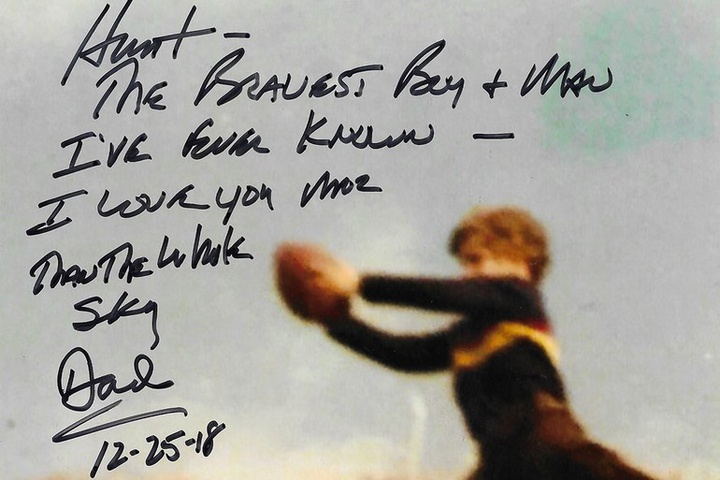 Hunt –
THE BRAVEST BOY + MAN
I'VE EVER KNOWN –
I LOVE YOU MORE
THAN THE WHOLE
SKY
Dad
12-25-18